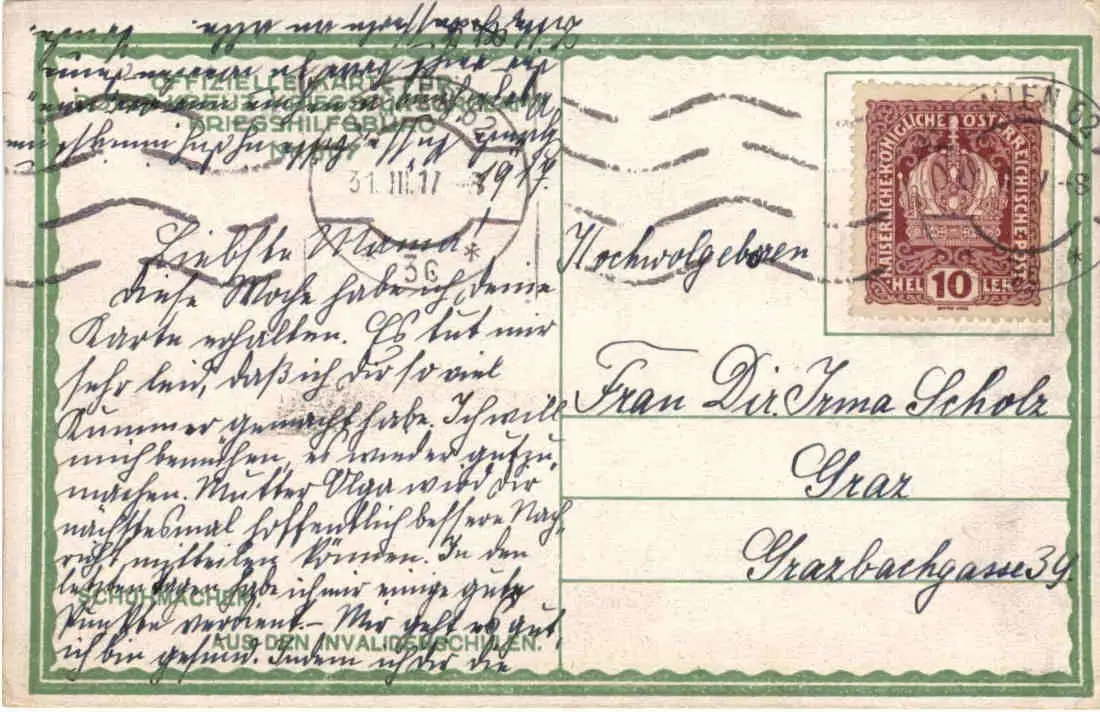 OFFIZIELLE KARTE FÜR
KRIEGSHILFSBÜRO
1917.
31. III. 17 -8
WIEN 62
KAISERLICHE KÖNIGLICHE ÖSTERREICHISCHE POST
HELLER
10
Liebste Mama!
Diese Woche habe ich deine
Karte erhalten. Es tut mir
sehr leid, daß ich dir so viel
Kummer gemacht habe. Ich will
mich bemühen, es wieder gutzu-
machen. Mutter Olga wird dir
nächstesmal hoffentlich bessere Nach-
richt mitteilen können. In den
letzten Tagen habe ich mir einige gute
Punkte verdient. – Mir geht es gut
ich bin gesund. Indem ich dir die
SCHUHMACHER
AUS DEN INVALIDENSCHULEN.
Hochwolgeboren
Frau Dir. Irma Scholz
Graz
Grazbachgasse 39.